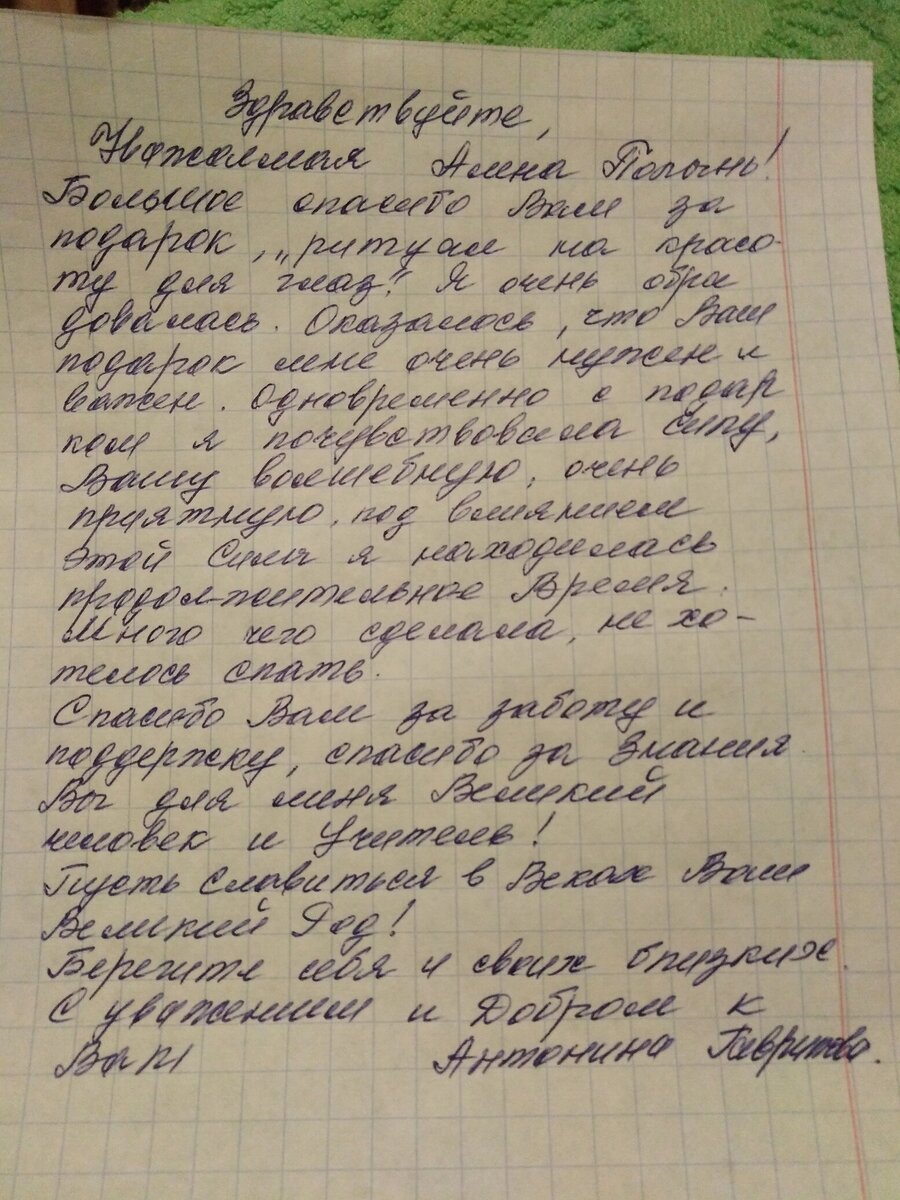 Здравствуйте,
Уважаемая Алена Полынь!
Большое спасибо Вам за
подарок, „ритуал на красо-
ту для глаз". Я очень обра
довалась. Оказалось, что Ваш
подарок мне очень нужен и
важен. Одновременно с подар
ком я почувствовала Силу,
Вашу волшебную, очень
приятную. под влиянием
этой Силы я находилась
продолжительное Время.
Много чего сделала, не хо-
телось спать.
Спасибо Вам за заботу и
поддержку, спасибо за Знания.
Вы для меня Великий
человек и Учитель!
Пусть славиться в Веках Ваш
Великий Род!
Берегите себя и своих близких.
С уважением и Добром к
Вам Антонина Гаврилова.